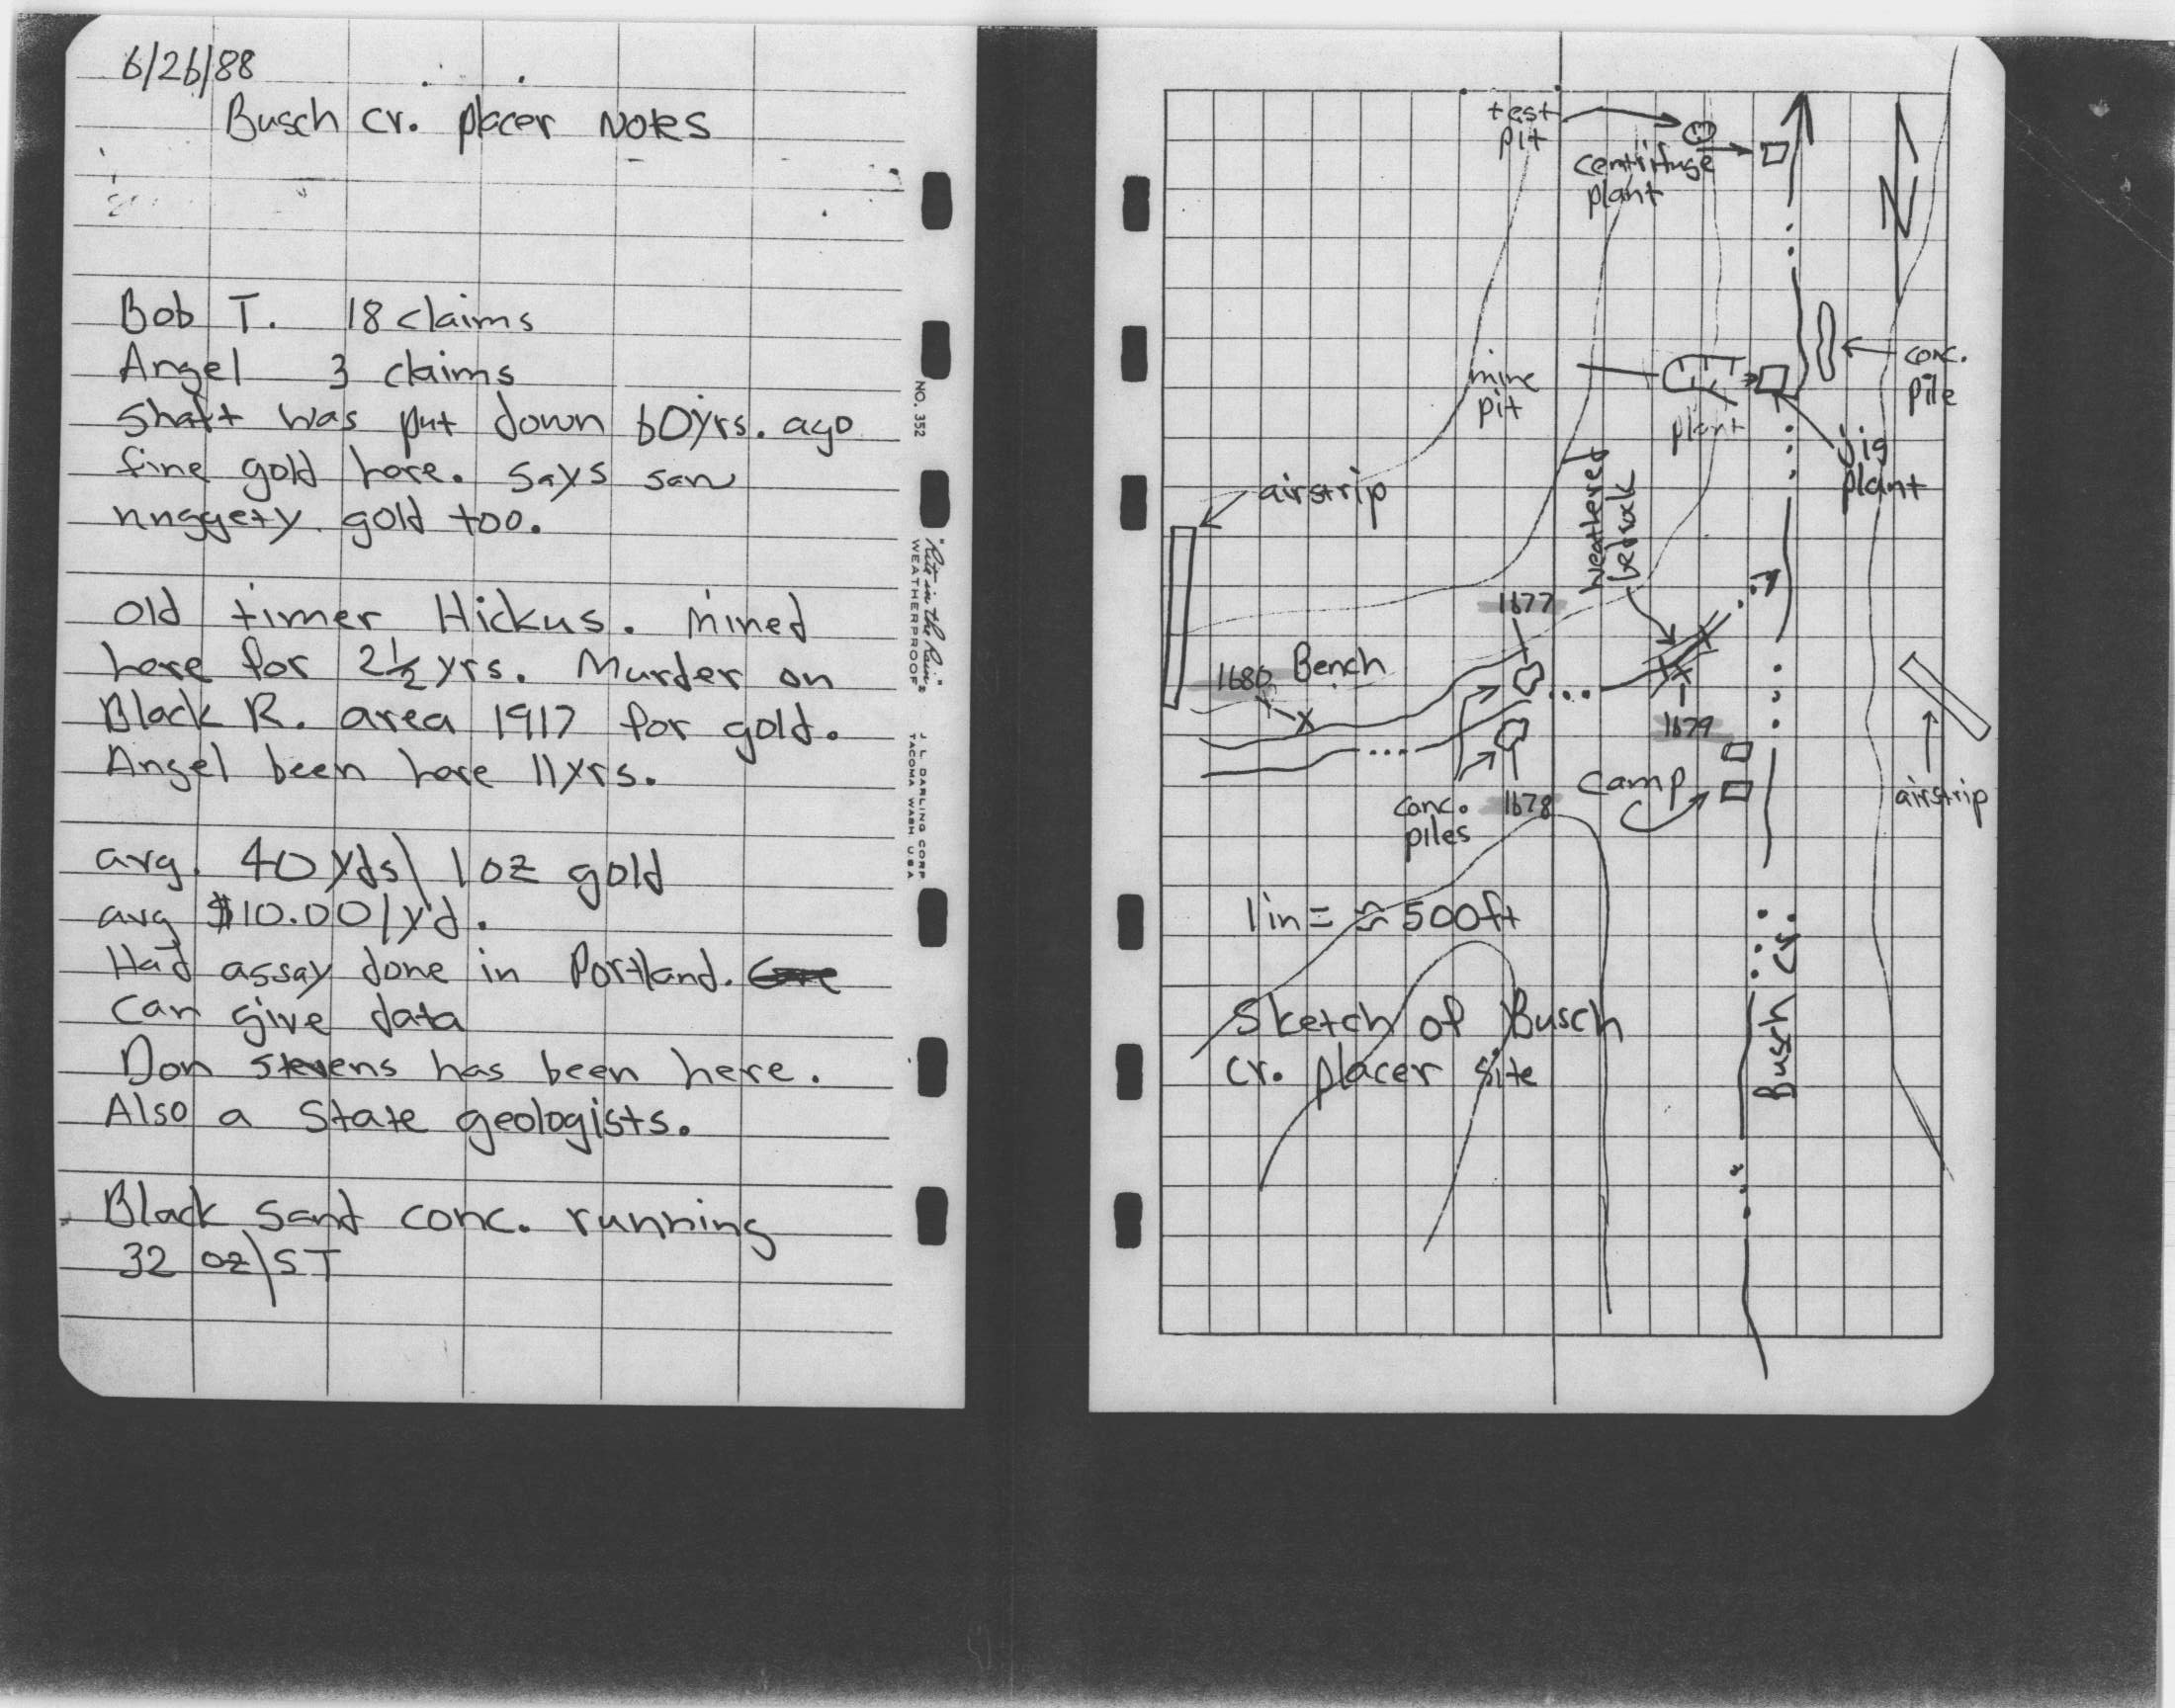 6/26/88
Busch cr. placer Notes
Bob T. 18 claims
Angel 3 claims
Shaft was put down 60yrs. ago
fine gold here. Says saw
nuggety gold too.
Old timer Hickus. Mined
here for 2½ yrs. Murder on
Black R. area 1917 for gold.
Angel been here 11yrs.
avg. 40 yds\ 1 oz gold
avg $10.00/yd.
Had assay done in Portland.
Can give data
Don Stevens has been here.
Also a State geologists.
Black Sand conc. running
32 oz\ST
NO. 352
"Rite in the Rain"
WEATHERPROOF
J. L. DARLING CORP
TACOMA WASH USA
test
pit
centrifuge
plant
N
mine
pit
plant
conc.
pile
jig
plant
airstrip
weathered
bedrock
1677
1680
Bench
1679
camp
airstrip
conc.
piles
1678
1 in = ≈ 500ft
Sketch of Busch
cr. placer site
Busch cr.